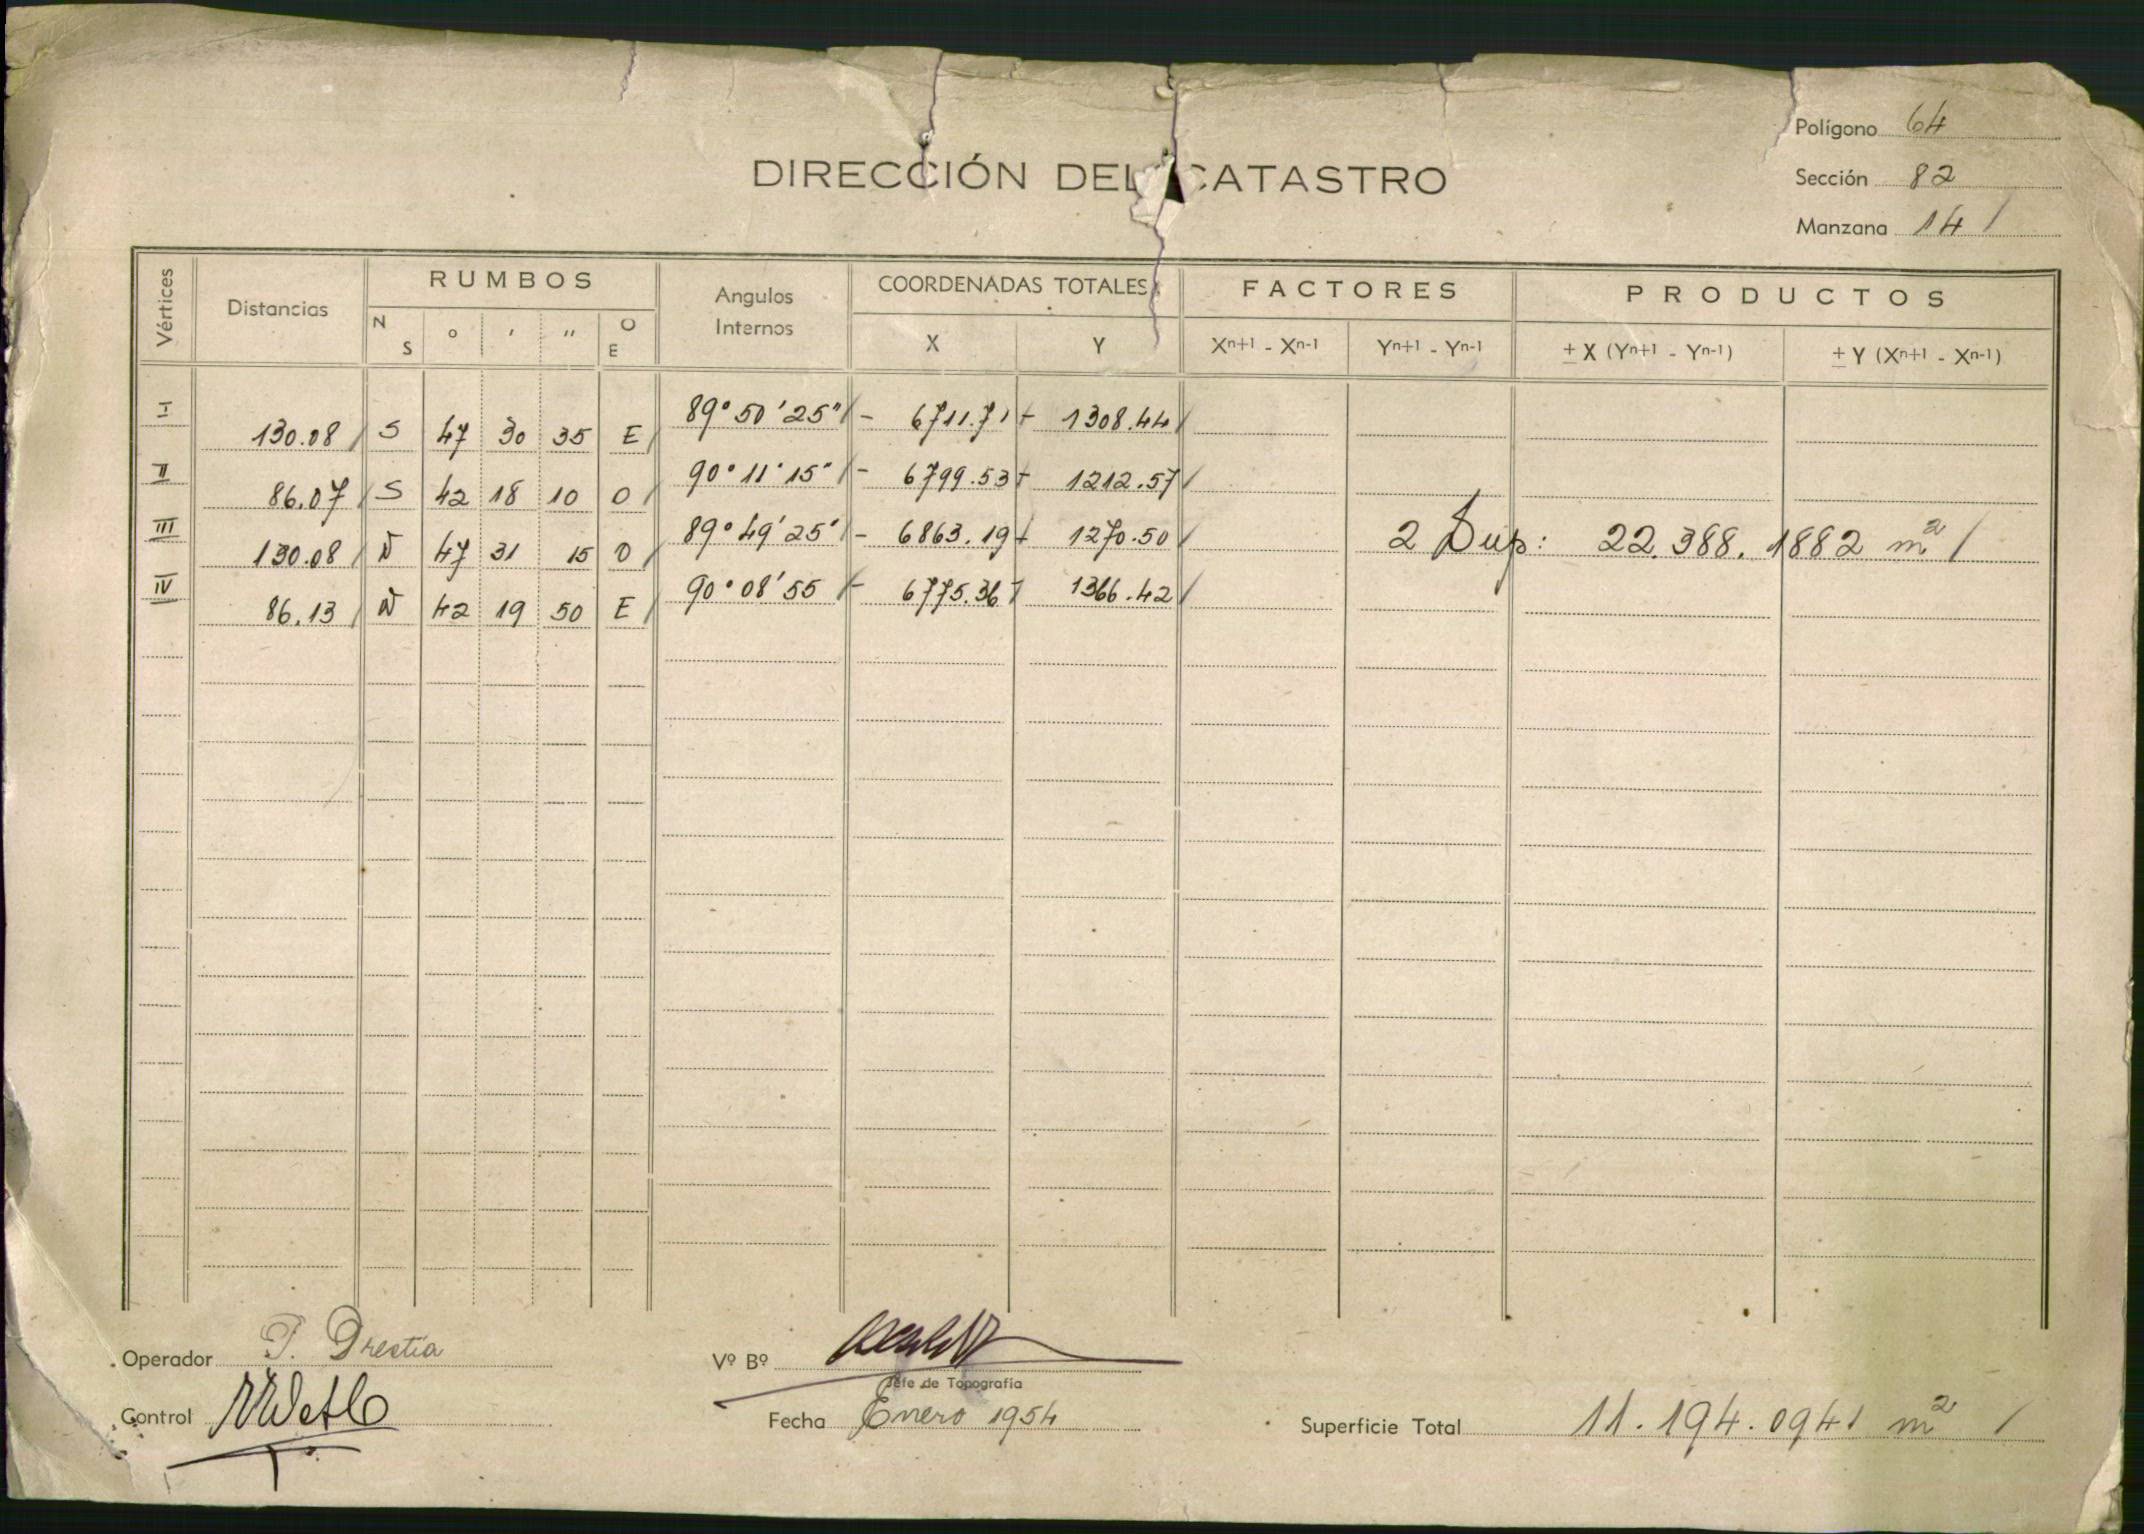 Polígono 64
DIRECCIÓN DEL CATASTRO
Sección 82
Manzana 14 /
Vértices Distancias RUMBOS Angulos Internos COORDENADAS TOTALES FACTORES PRODUCTOS
N S ° ' " O E X Y Xn+1 - Xn-1 Yn+1 - Yn-1 ± X (Yn+1 - Yn-1) ± Y (Xn+1 - Xn-1)
I 130.08 / S 47 30 35 E / 89° 50' 25" / - 6711.71 + 1308.44 /
II 86.07 / S 42 18 10 O / 90° 11' 15" / - 6799.53 + 1212.57 /
III 130.08 / N 47 31 15 O / 89° 49' 25" / - 6863.19 + 1270.50 / 2 Sup: 22.388.1882 m² /
IV 86.13 / N 42 19 50 E / 90° 08' 55 / - 6775.36 + 1366.42 /
Operador
Vº Bº
Jefe de Topografía
Control
Fecha Enero 1954
Superficie Total 11.194.0941 m² /